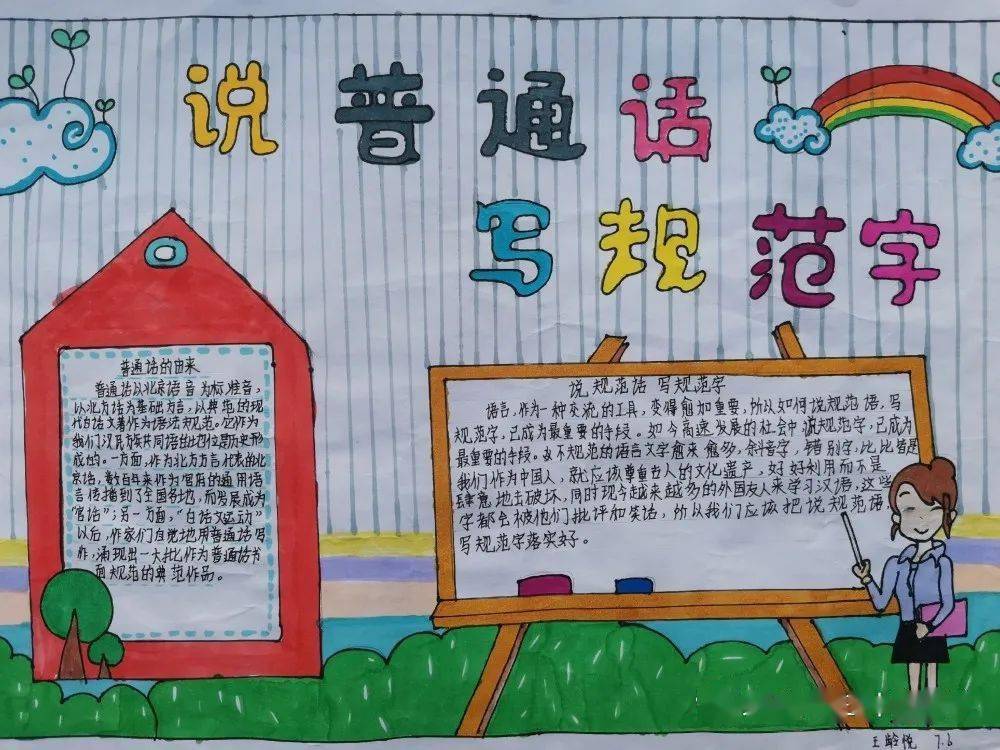 说普通话
写规范字
普通话的由来
普通话以北京语音为标准音,
以北方话为基础方言,以典范的现
代白话文著作为语法规范。它作为
我们汉民族共同语的地位是历史形
成的。一方面,作为北方方言代表的北
京话,数百年来作为官府的通用语
言传播到了全国各地,而发展成为
"官话";另一方面,"白话文运动"
以后,作家们自觉地用普通话写
作,涌现出一大批作为普通话书
面规范的典范作品。
说规范话 写规范字
语言,作为一种交流的工具,变得愈加重要,所以如何说规范语,写
规范字,已成为最重要的手段。如今高速发展的社会中说规范字,已成为
最重要的手段。不规范的语言文字愈来愈多,斜音字,错别字,比比皆是
我们作为中国人,就应该尊重古人的文化遗产,好好利用而不是
肆意地去破坏,同时现今越来越多的外国友人来学习汉语,这些
字都会被他们批评和笑话,所以我们应该把说规范语,
写规范字落实好。
王龄悦 7.6